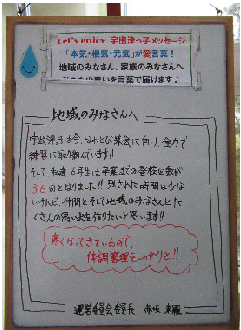 Let's enjoy 宇出津っ子メッセージ
「本気・根気・元気」が愛言葉！
地域のみなさん、家族のみなさんへ
言葉で届けます♪
地域のみなさんへ
宇出津っ子は今、なわとび集会に向け全力で
練習に取り組んでいます!!
そして私達6年生は卒業までの登校日数が
36日となりました!!残された時間は少な
いけれど、仲間とそして地域のみなさんとた
くさんの思い出を作りたいと思います!!
寒くなってきているので、
体調管理をしっかりと!!
運営委員会委員長